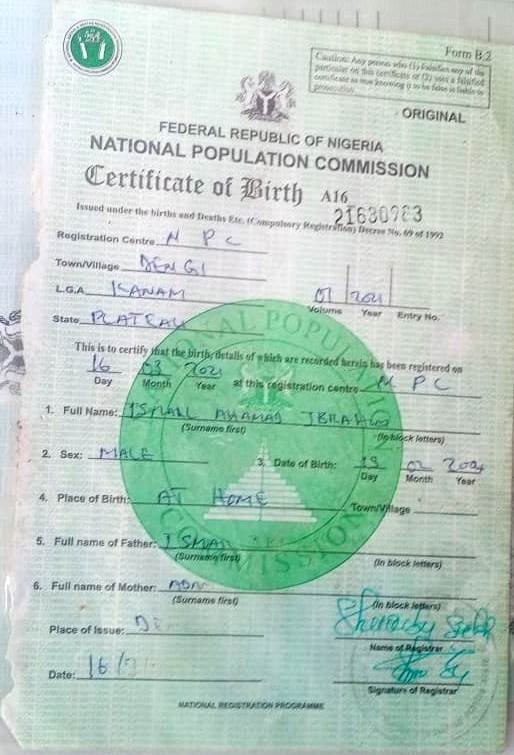 Form B.2
Caution: Any person who (1) Falsifies any of the
particular on this certificate or (2) uses a falsified
certificate as true knowing it to be false is liable to
prosecution
ORIGINAL
FEDERAL REPUBLIC OF NIGERIA
NATIONAL POPULATION COMMISSION
Certificate of Birth A16
21630983
Issued under the births and Deaths Etc. (Compulsory Registration) Decree No. 69 of 1992
Registration Centre N P C
Town/Village DENGI
L.G.A. KANAM
State PLATEAU
01 2021
Volume Year Entry No.
This is to certify that the birth, details of which are recorded herein has been registered on
16 03 2021 at this registration centre N P C
Day Month Year
1. Full Name: ISMAIL AHAMAD IBRAHIM
(Surname first) (In block letters)
2. Sex: MALE 3. Date of Birth: 02
Day Month Year
4. Place of Birth: AT HOME Town/Village
5. Full name of Father:
(Surname first) (In block letters)
6. Full name of Mother:
(Surname first) (In block letters)
Place of Issue:
Name of Registrar
Date: 16/
Signature of Registrar
NATIONAL REGISTRATION PROGRAMME